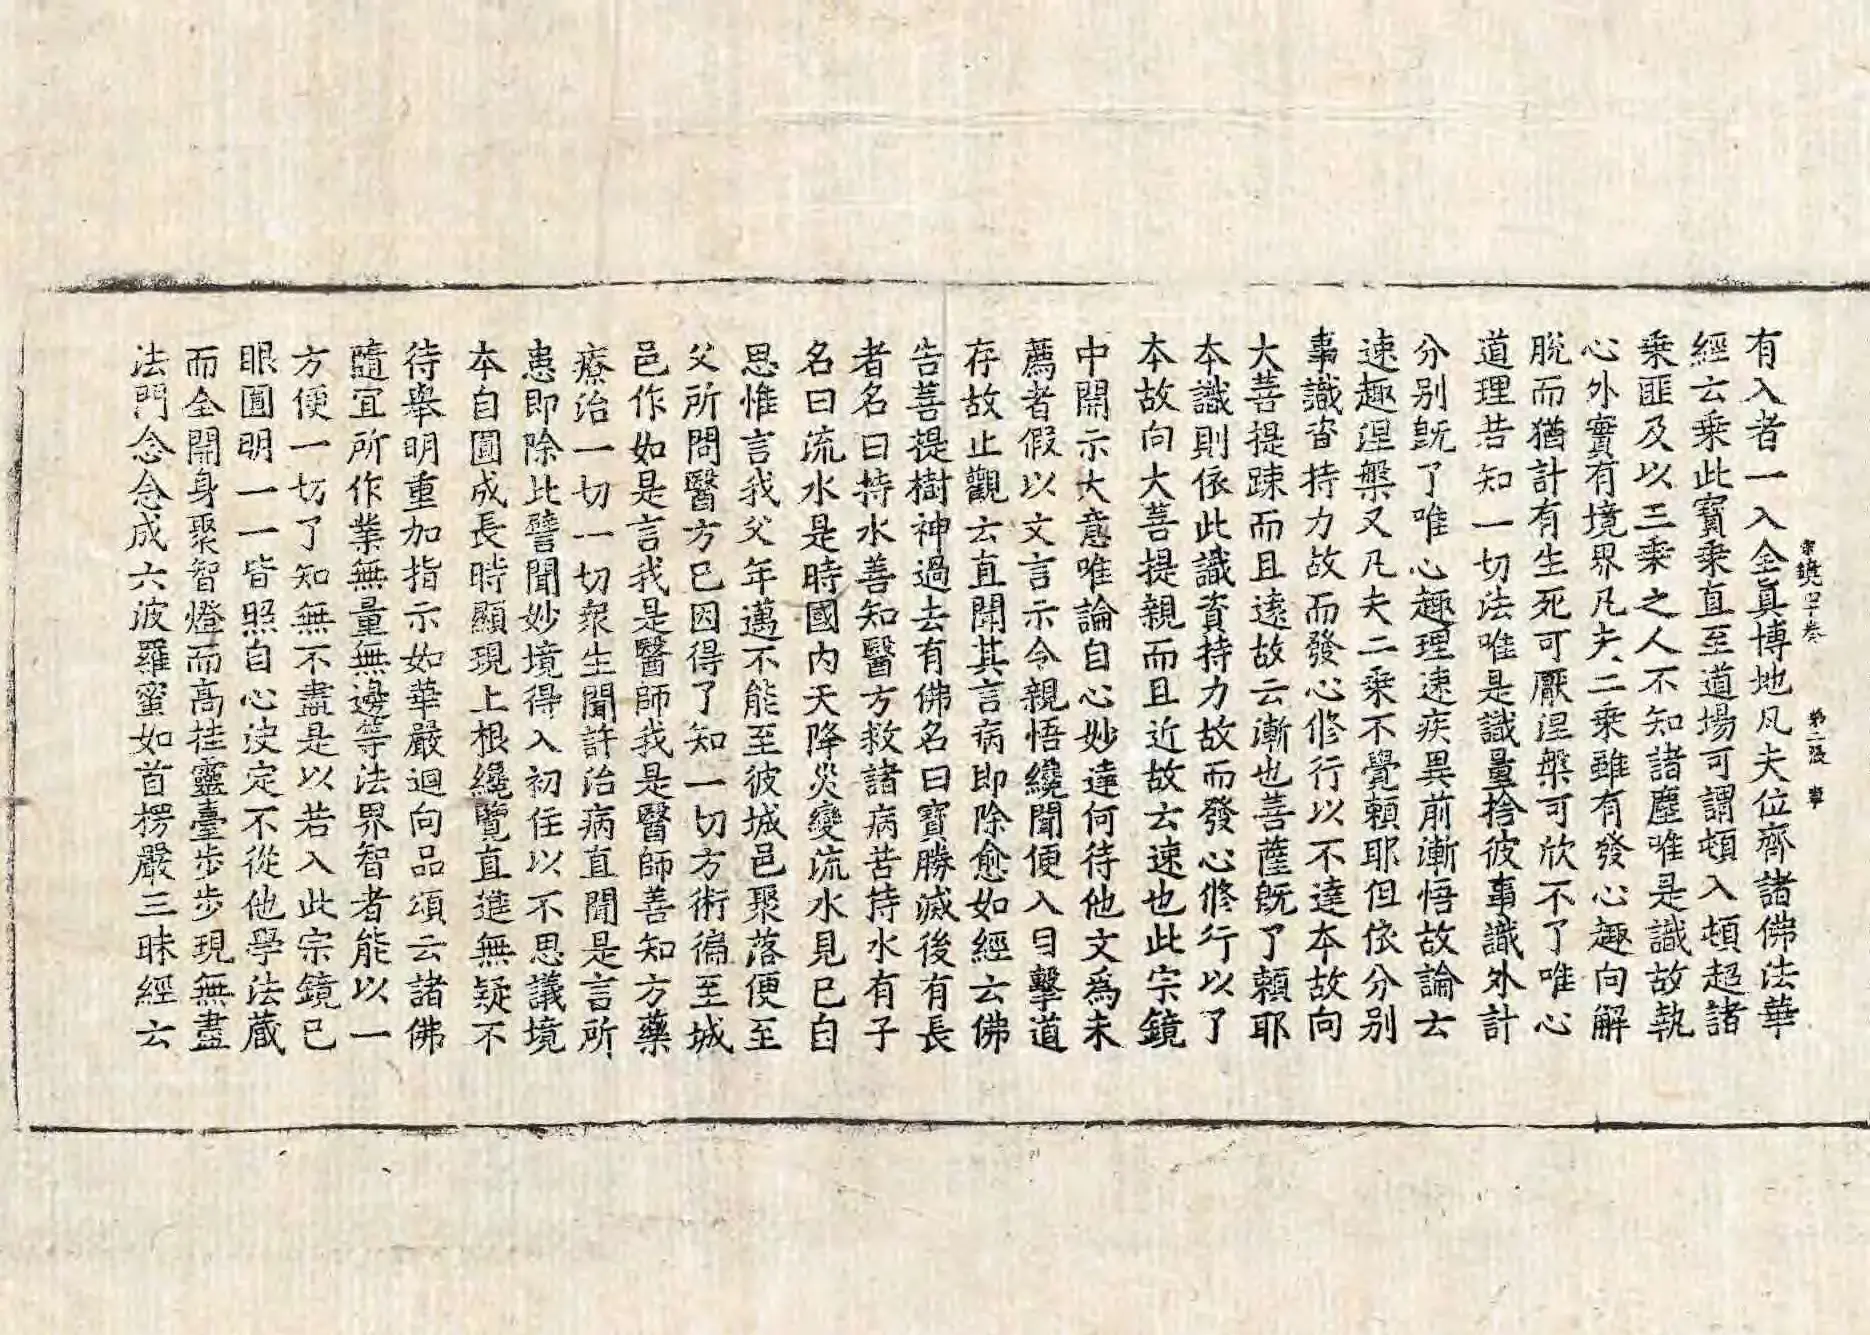 宗鏡四十卷 第二張
有入者一入全真博地凡夫位齊諸佛法華
經云乗此寶乗直至道場可謂頓入頓超諸
乗匪及以三乗之人不知諸塵唯是識故執
心外實有境界凡夫二乗雖有發心趣向解
脫而猶計有生死可厭涅槃可欣不了唯心
道理若知一切法唯是識量捨彼事識外計
分別旣了唯心趣理速疾異前漸悟故論云
速趣涅槃又凡夫二乗不覺賴耶但依分別
事識資持力故而發心修行以不達本故向
大菩提踈而且遠故云漸也菩薩旣了賴耶
本識則依此識資持力故而發心修行以了
本故向大菩提親而且近故云速也此宗鏡
中開示大意唯論自心妙達何待他文為未
薦者假以文言示令親悟纔聞便入目擊道
存故止觀云直聞其言病即除愈如經云佛
告善提樹神過去有佛名曰寶勝滅後有長
者名曰持水善知醫方救諸病苦持水有子
名曰流水是時國內天降災變流水見已自
思惟言我父年邁不能至彼城邑聚落便至
父所問醫方已因得了知一切方術徧至城
邑作如是言我是醫師我是醫師善知方藥
療治一切一切衆生聞許治病直聞是言所
患即除比譬聞妙境得入初住以不思議境
本自圓成長時顯現上根纔覽直進無疑不
待舉明重加指示如華嚴迴向品頌云諸佛
隨宜所作業無量無邊等法界智者能以一
方便一切了知無不盡是以若入此宗鏡已
眼圓明一一皆照自心決定不從他學法蔵
而全開身聚智燈而高挂靈臺步步現無盡
法門念念成六波羅蜜如首楞嚴三昧經云